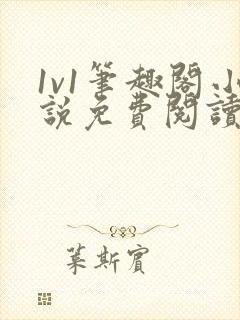 1v1筆趣閣.小
說免費閱讀
葉斯賓